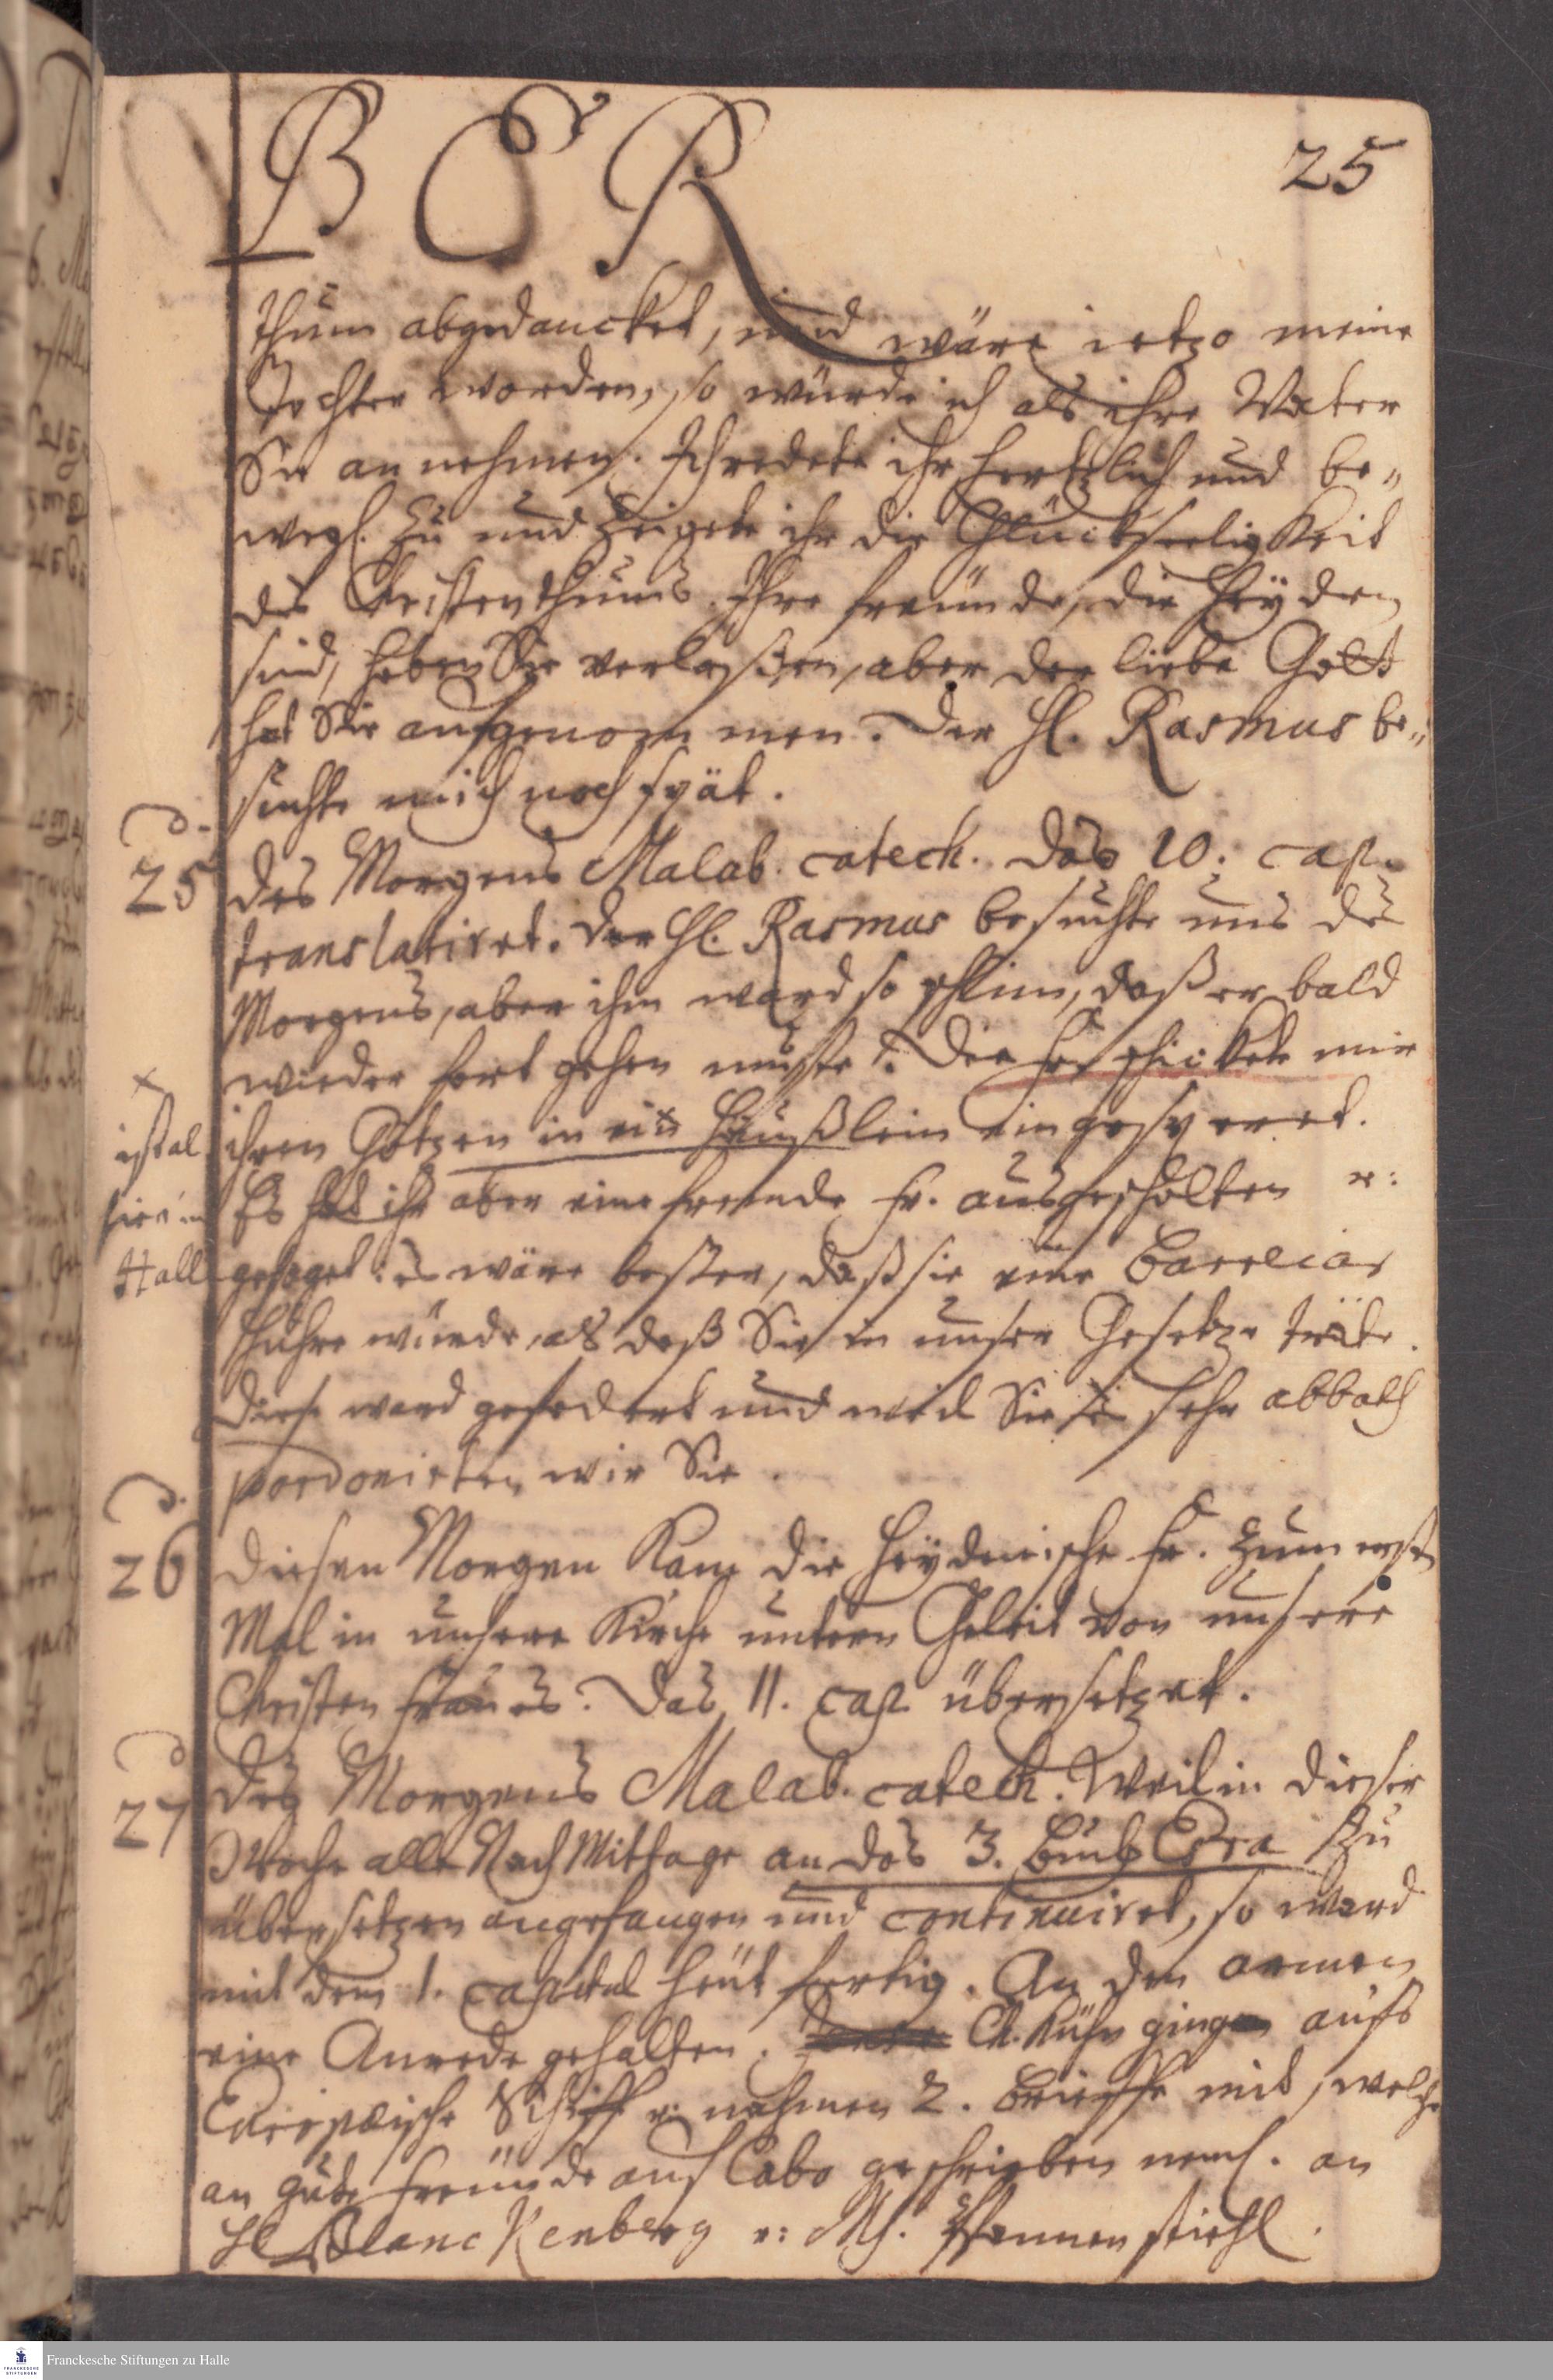 BER
25
thum abgedancket, und wäre ietzo meine
Tochter worden, so würde ich als ihr Vater
Sie annehmen. Ich redete ihr hertzlich und be„
wegl. zu und zeigete ihr die Glückseeligkeit
des Christenthums. Ihre freunde, die Heyden
sind, haben Sie verlaßen, aber der liebe Gott
hat Sie aufgenommen. Der H. Rasmus be„
suchte mich noch spät.
d.
25
des Morgens Malab. catech. das 10. cap.
translatiret. Der H. Rasmus besuchte uns des
Morgens, aber ihm ward so schlim, daß er bald
wieder fort gehen muste. Die schickete mir
ihren Götzen in ein Häußlein eingesperret.
x
ist al
hier in
Hall
Es hat ihr aber eine fremde Fr. ausgescholten u:
gesaget: es wäre besser, daß sie eine
Hure würde, als daß Sie in unser Gesetze träte.
Diese ward gefodert und weil Sie sehr abbath
pardonirten wir Sie.
d.
26
diesen Morgen kam die Heydnische Fr. zum erst
Mal in unsere Kirche untern Geleit von unsere
Christen Frauens. Das 11. cap übersetzet.
d
27
des Morgens Malab. catech. Weil in dieser
Woche alle NachMittage an das 3. Buch Esra zu
übersetzen angefangen und continuiret, so ward
mit dem 1. capitul heut fertig. An den armen
eine Anrede gehalten. ging aufs
Europæische Schiff u: nahmen 2. Brieffe mit, welche
an gute freunde auf Cabo geschrieben neml. an
H Blanckenberg u: Pfannenstiehl.
Franckesche Stiftungen zu Halle